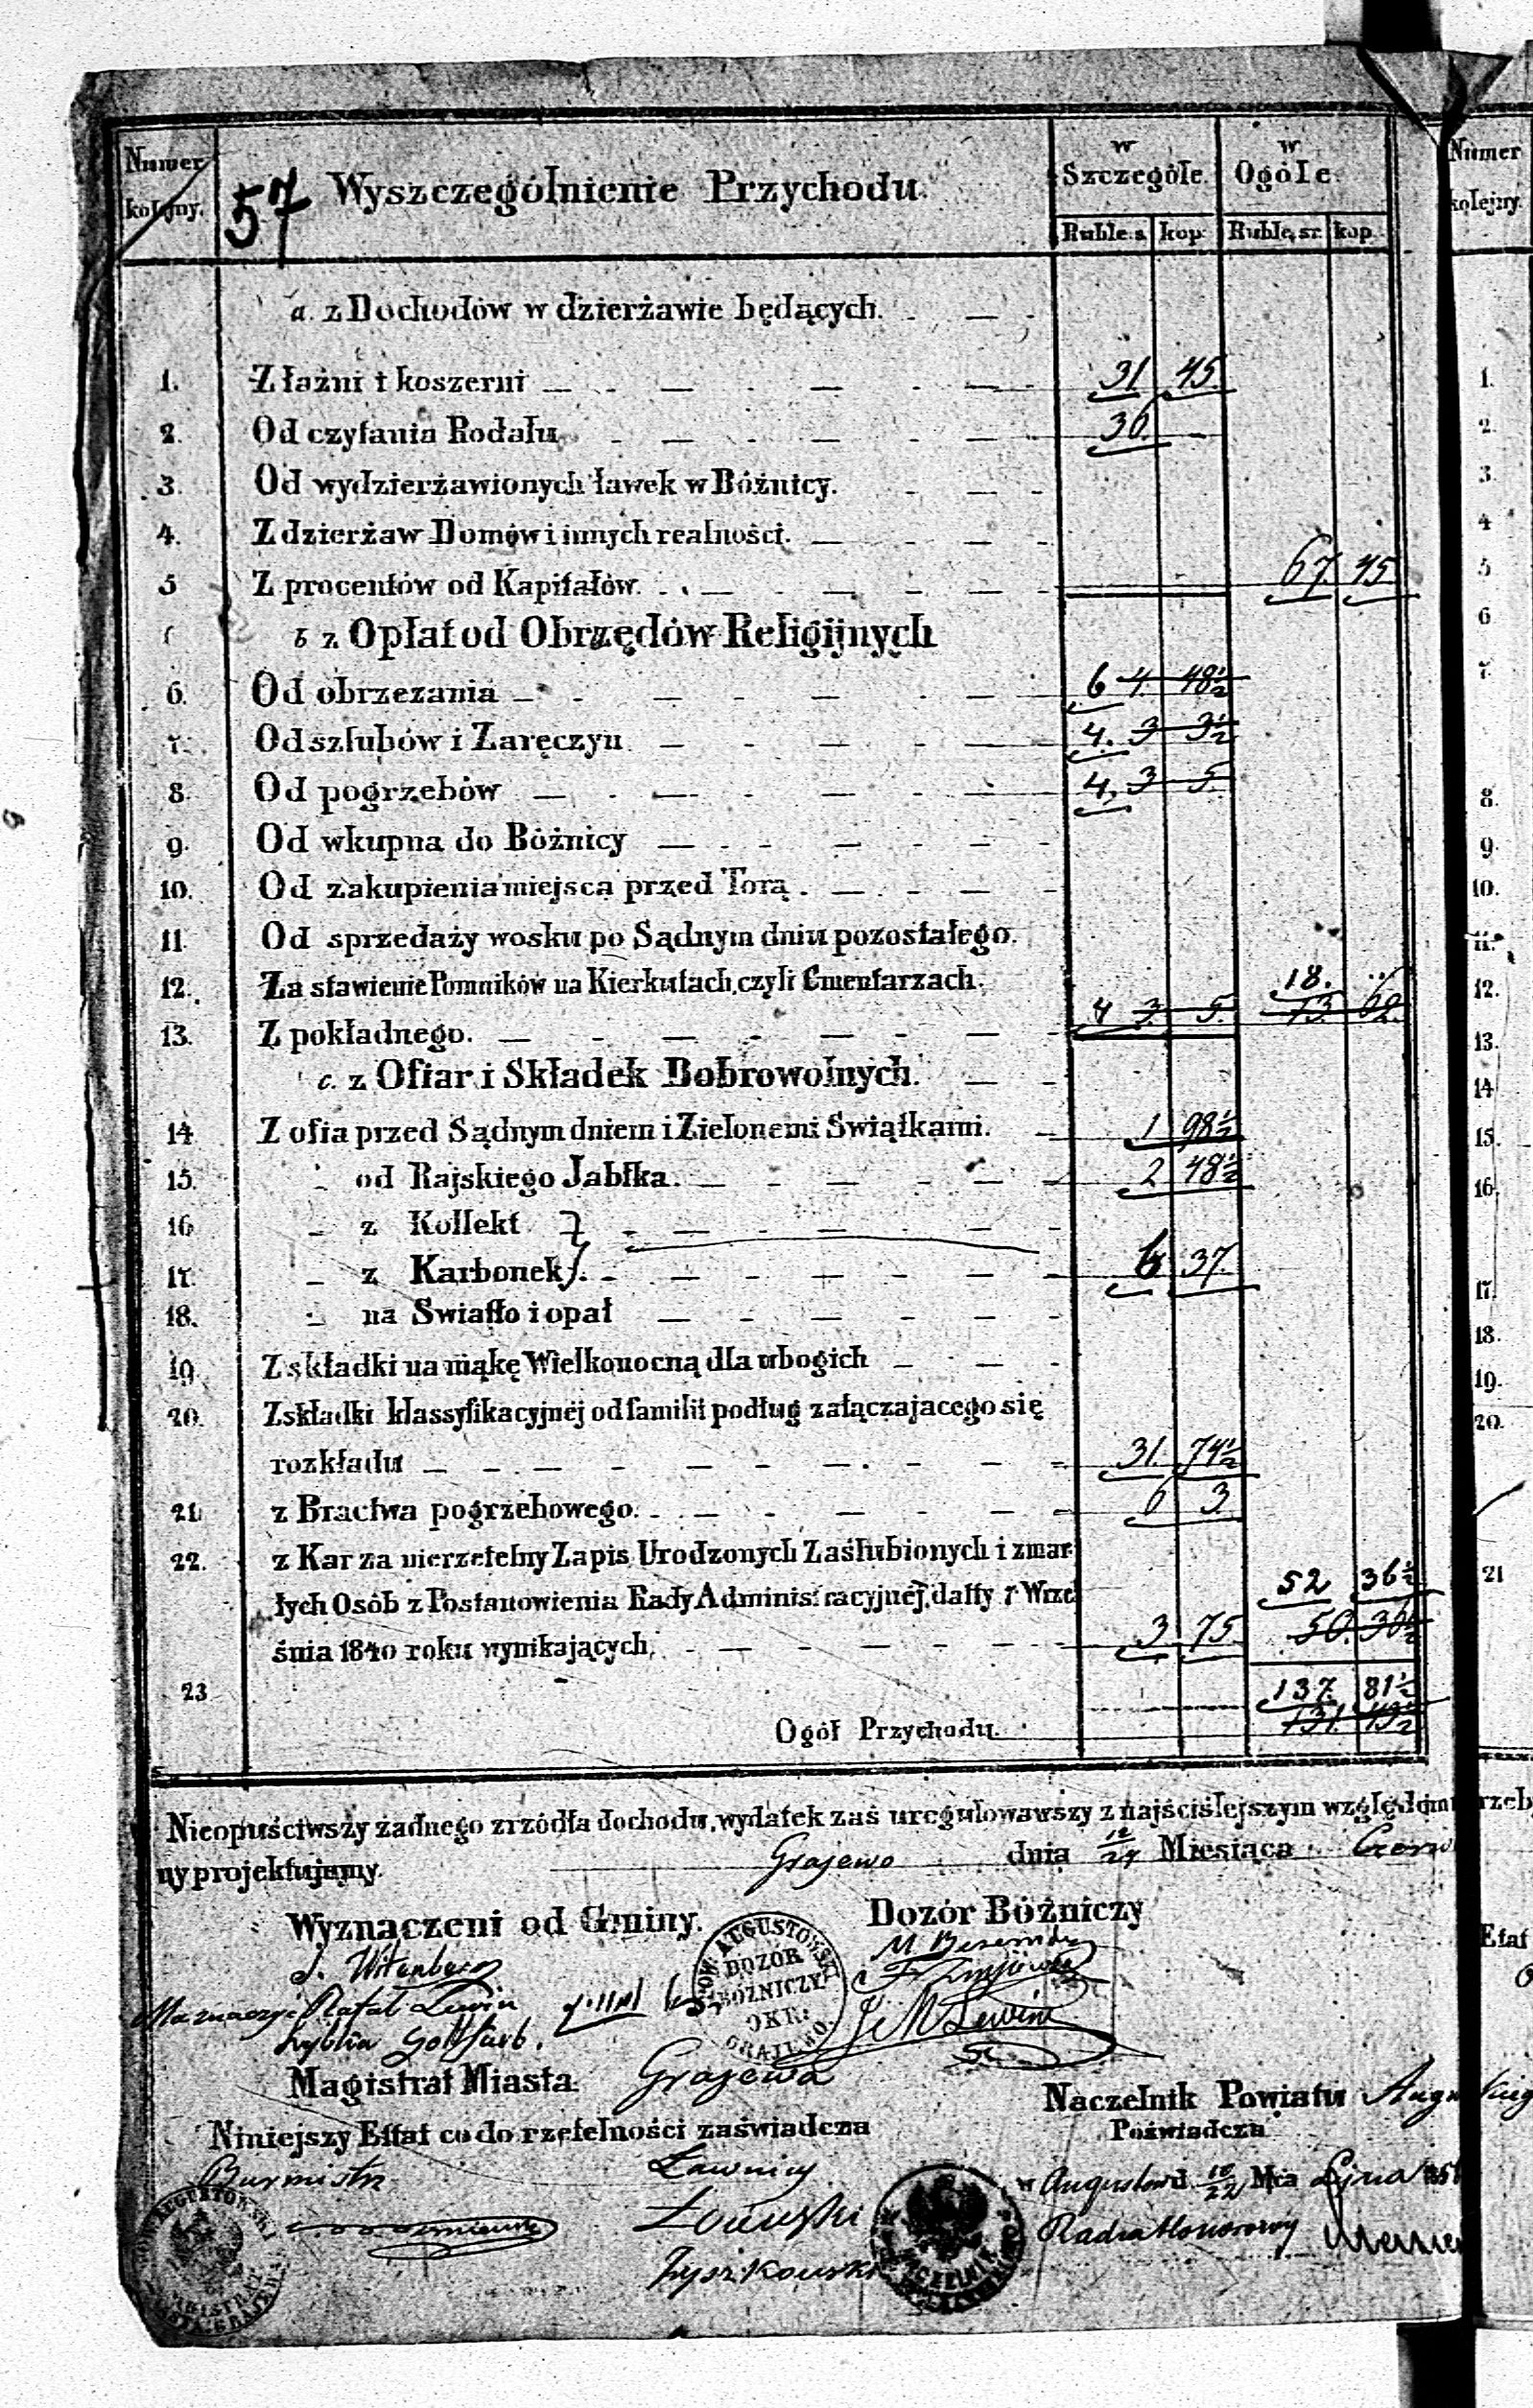 Numer kolejny.
57 Wyszczególnienie Przychodu.
w Szczególe. w Ogóle.
Ruble s. kop. Ruble sr. kop.
a. z Dochodów w dzierżawie będących.
1. Z łaźni i koszerni 31 45.
2. Od czytania Rodału 36. —
3. Od wydzierżawionych ławek w Bóźnicy.
4. Z dzierżaw Domów i innych realności.
5 Z procentów od Kapitałów. 67. 45
b z Opłat od Obrzędów Religijnych
6. Od obrzezania 6 4. 48½
7. Od szlubów i Zaręczyn 4. 3 3½
8. Od pogrzebów 4. 3 5.
9. Od wkupna do Bóżnicy
10. Od zakupienia miejsca przed Torą.
11. Od sprzedaży wosku po Sądnym dniu pozostałego.
12. Za stawienie Pomników na Kierkutach, czyli Cmentarzach. 18.
13. Z pokładnego. 4 3. 5. 13.
c. z Ofiar i Składek Dobrowolnych.
14 Z ofia przed Sądnym dniem i Zielonemi Swiątkami. 1 98½
15. od Rajskiego Jabłka. 2 48½
16 z Kollekt
17. z Karbonek. 6 37.
18. na Swiatło i opał
19. Z składki na mąkę Wielkonocną dla ubogich
20. Z składki klassyfikacyjnéj od familii podług załączajacego się
rozkładu 31. 74½
21. z Bractwa pogrzebowego. 6 3.
22. z Kar za nierzetelny Zapis Urodzonych Zaślubionych i zmar
łych Osób z Postanowienia Rady Administracyjnéj, datty 7 Wrze 52 36½
śnia 1840 roku wynikających. 3 75. 50. 36½
23 137. 81½
Ogół Przychodu. 131. 43½
Nieopuściwszy żadnego zrzódła dochodu, wydatek zaś uregulowawszy z najściślejszym względem
ny projektujemy.
Grajewo dnia 12/24 Miesiąca Czerw
Wyznaczeni od Gminy. Dozór Bóżniczy
J. Witenberg
Rafał Lewin
Goldfarb.
J M Lewin
POW. AUGUSTOWSKI DOZÓR BÓŻNICZY OKR: GRAJEWO.
Magistrat Miasta Grajewa
Naczelnik Powiatu Augu
Niniejszy Ettat co do rzetelności zaświadcza
Poświadcza
Burmistrz Ławnicy
w Augustowi d. 10/22 Mca Lipca 185
Radca Honorowy
Zyszkowski
Numer kolejny.
1.
2.
3.
4
5
6
7.
8.
9.
10.
11.
12.
13.
14
15.
16.
17.
18.
19.
20.
21
Etat